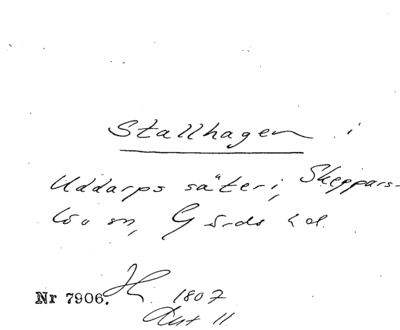 Stallhagen i
Uddarps säteri, Skeppars-
löv sn, Gärds hd.
Nr 7906. 1807
Akt 11